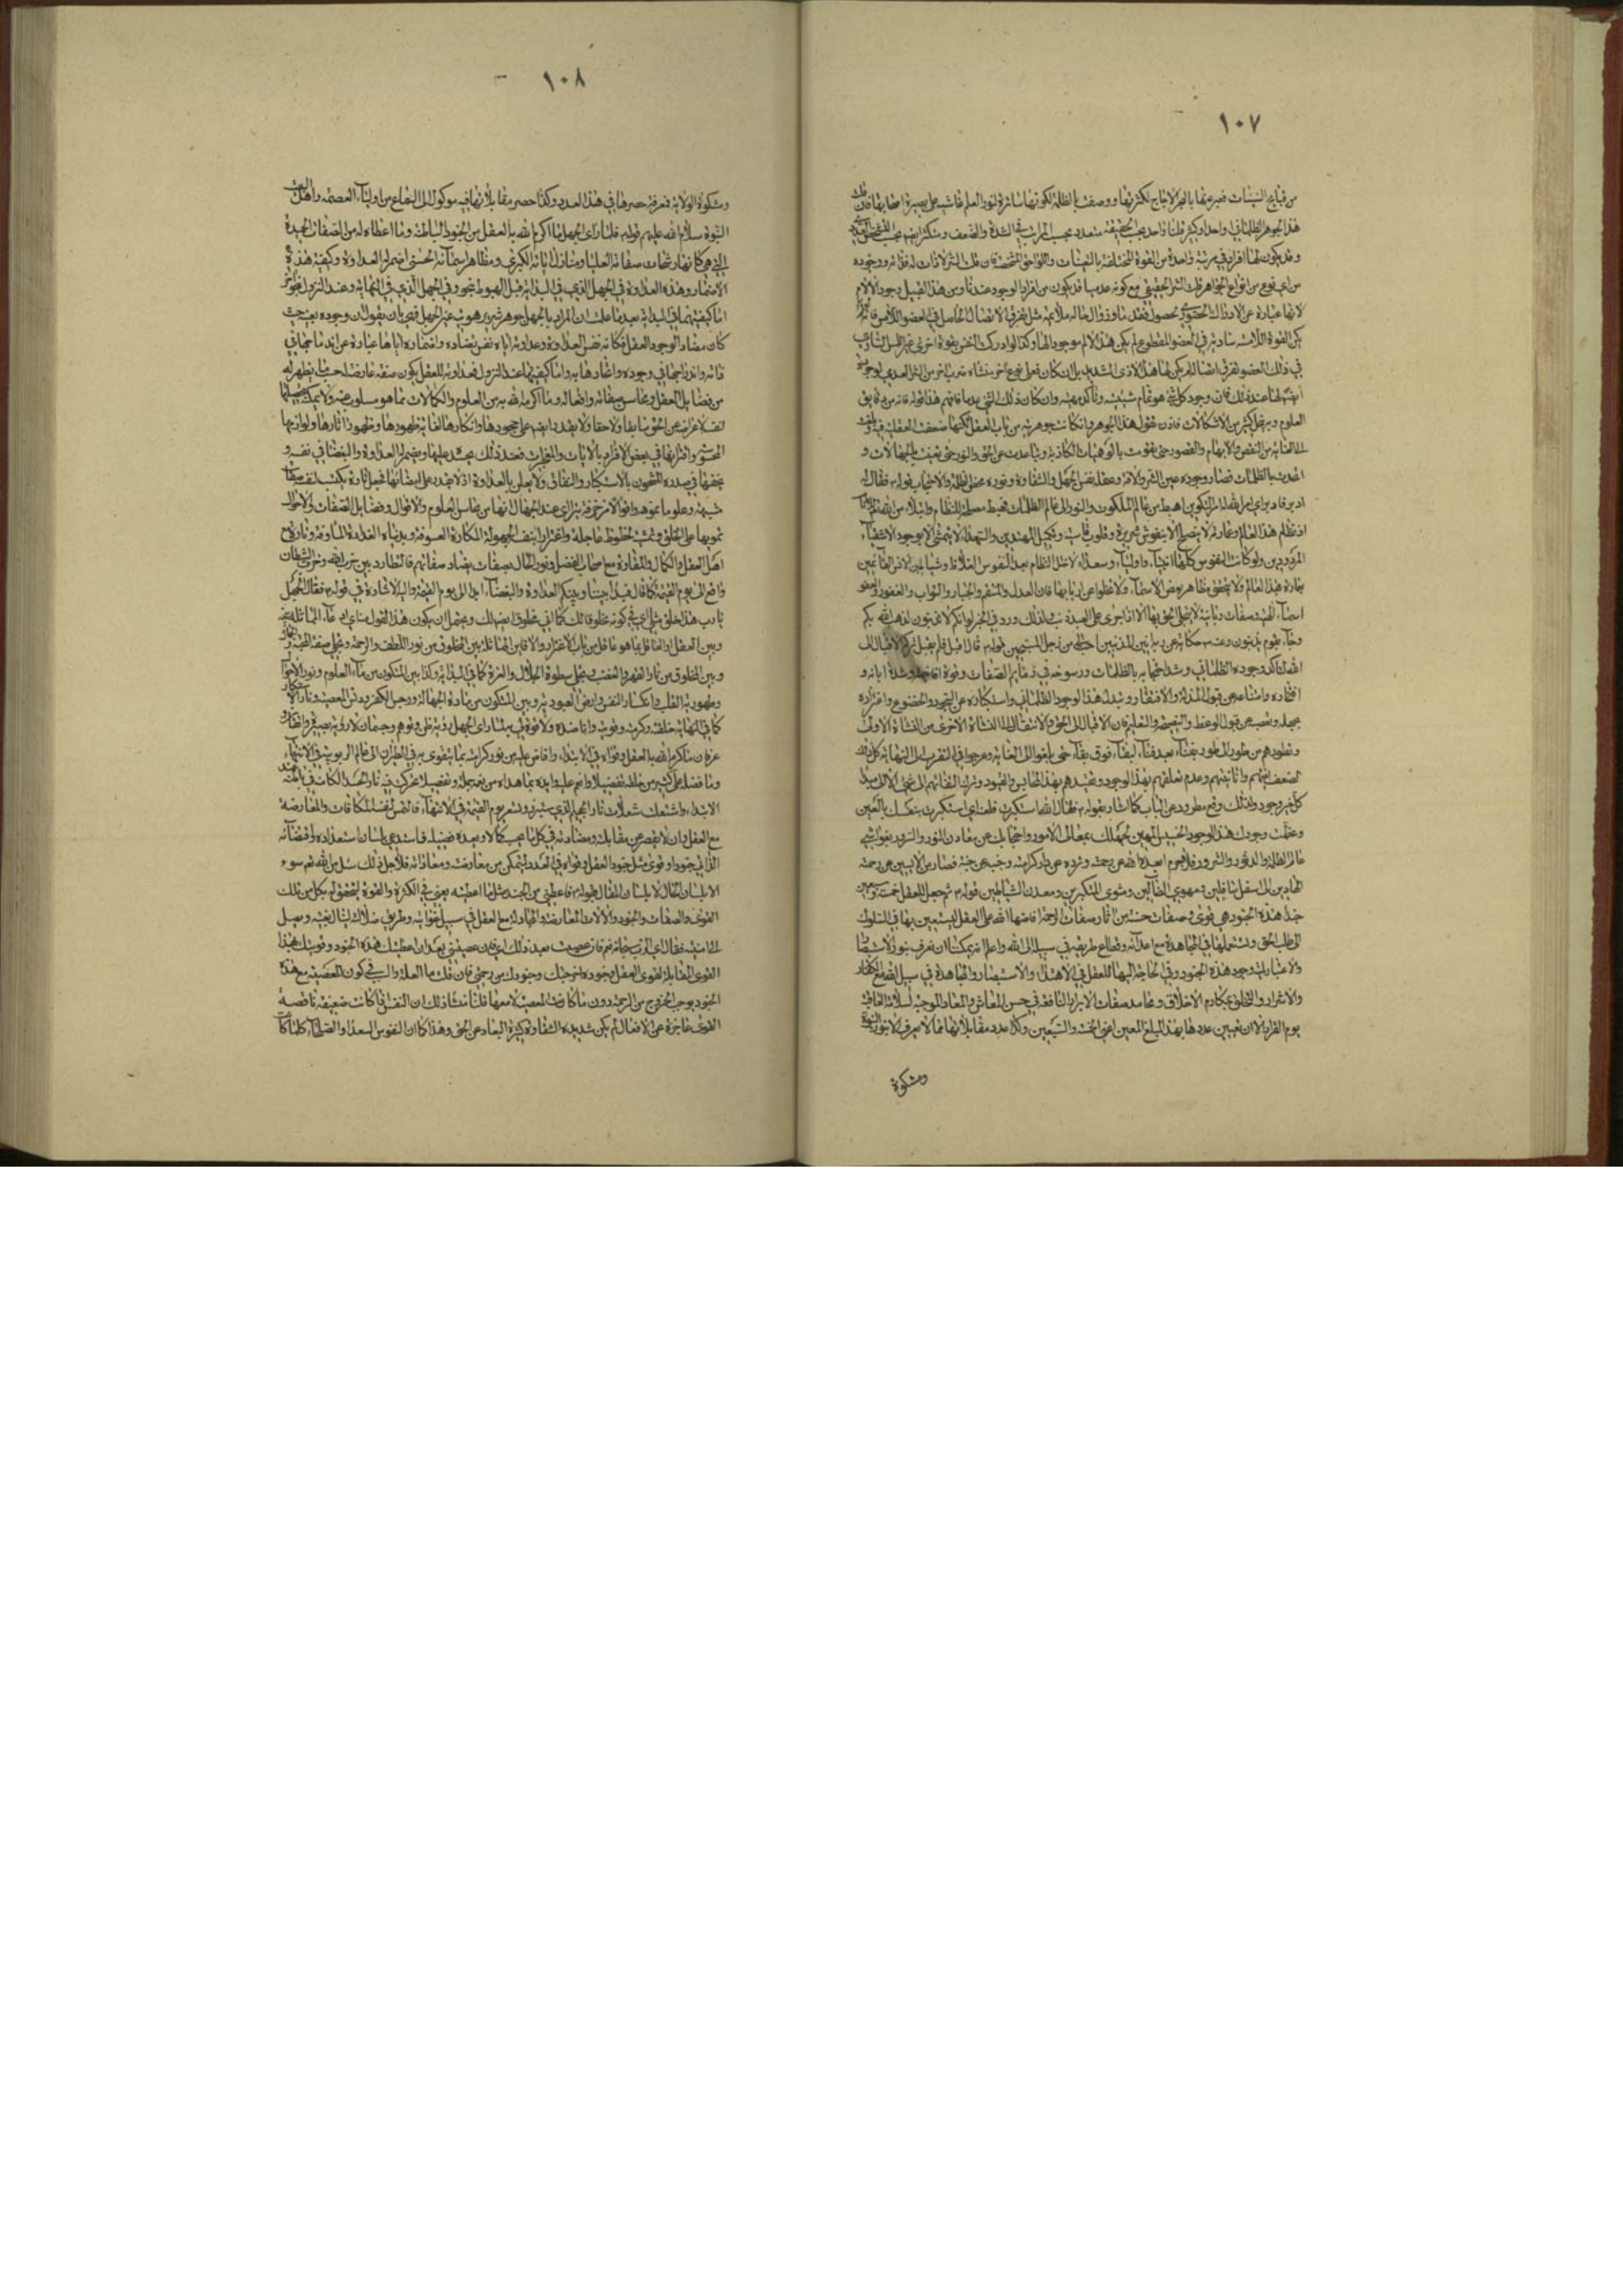 ١٠٧
من قبايح السيئات فعبر عنها بالبحر الاجاج لكثرتها ووصف بالظلمة لكونها ساترة لنور العلم غاشية على بصيرة اصحابها فان قلت
هذا الجوهر الظلماني واحد او كثير قلنا واحد بحسب الحقيقة متعدد بحسب المراتب في الشدة والضعف ومتكثر ايضا بحسب
وقد يكون لها افراد في مرتبة واحدة من القوة مختلفة بالتعينات واللواحق المشخصة فان قلت الشر لا ذات له فلا نه ووجوده
من اي نوع من انواع الجواهر قلت الشر الحقيقي مع كونه عدميا قد يكون من افراد الوجود عندنا ومن هذا القبيل وجود الالام
لانها عبارة عن الادراك الحضوري بحصول فقد ما وزوال حاله ملايمة مثل تفرق الاتصال الحاصل في العضو اللامس فانه لو لم
يكن القوة اللامسة سارية في العضو المقطوع لم يكن هذا الالم موجودا لها وكذا لو ادركت النفس بقوة اخرى غير اللمس الساري
في ذلك العضو تفرق اتصاله لم يكن لها هذا الاذى الشديد بل ان كان فعلى نوع اخر منشاءه ضرب اخر من الشر العدمي
ايضا لها عند ذلك فان وجود كل شئ هو تمام شيئيته وتأكد مهيته وان كان ذلك الشئ عدما فافهم هذا فانه من دقايق
العلوم وبه ينحل كثير من الاشكالات فاذن نقول هذا الجوهر وان كانت جوهريته من باب العقل لكنها ضعفت العقلية فيه وبلغت
الى الغاية من النقص والابهام والقصور حتى تقوت بالوهميات الكاذبة وتباعدت عن الحق والنور حتى تغيبت بالجهالات و
اتحدت بالظلمات فصار وجوده عين الشر والافة وعقله نفس الجهل والشقاوة ونوره محض الظلمة والاحتجاب قوله ع فقال له
ادبر فادبر اي امر الله له امر التكوين اهبط من عالم الملكوت والنور الى عالم الظلمات فهبط مصلحة للنظام وابتلاء من الله للانام
اذ نظام هذا العالم وعمارته لا ينصلح الا بنفوس شريرة وقلوب قاسية وتكميل المهتدين والسعداء لا يتمشى الا بوجود الاشقياء
المردودين ولو كانت النفوس كلها انبياء واولياء وسعداء لاختل النظام بعد النفوس الغلاظ وشياطين الانس القائمين
بعمارة هذا العالم ولا يتحقق مظاهر بعض الاسماء ولا تخلوا عن اربابها فان العدل والمنتقم والجبار والتواب والغفور والعفو
اسماء الهية وصفات ربانية لا يتجلى الحق بها الا اذا جرى على العبد ذنب ولذلك ورد في الخبر لو انكم لا تذنبون لذهب الله بكم
وجاء بقوم يذنبون وعنه ع حكاية عن ربه انين المذنبين احب الي من زجل المسبحين قوله ع ثم قال له اقبل فلم يقبل الاقبال الى
الله لتأكد وجوده الظلماني وشدة احتجابه بالظلمات ورسوخه في ذمايم الصفات وقوة وشدة ابائه و
افتخاره وامتناعه عن قبول المذلة والافتقار وتبدل هذا الوجود الظلماني واستكباره عن السجود والخضوع واغتراره
بجهله وتعصبه عن قبول الوعظ والنصيحة والتعليم فان الاقبال الى الحق والانتقال الى النشأة الاخرى من النشأة الاولى
وتطورهم من طور الى طور بفناء بعد فناء لبقاء فوق بقاء حتى بلغوا الى الغاية وعرجوا في القرب الى النهاية كل ذلك
لضعف انيتهم وانانيتهم وعدم تعلقهم بهذا الوجود وتقيدهم بهذا المحابس والقيود وترك التفاتهم الى شئ الا الى مبدأ
كل خير وجود ولذلك وقع مطرودا عن الباب كما اشار بقوله ع فقال الله استكبرت فلعنه اي استكبرت بنفسك بالتعين
وعظمت وجودك هذا الوجود الخسيس المهين لجهلك بمعالى الامور واحتجابك عن معادن النور والسرور بغواشي
عالم الظلمة والدثور والشرور فلا جرم ابعده الله عن رحمته وطرده عن دار كرامته وخيبه عن جنته فصار من الايسين عن رحمة
الهادين الى اسفل سافلين ومهوى الضالين ومثوى المتكبرين ومعدن الشياطين قوله ع ثم جعل للعقل خمسة وسبعين
جندا هذه الجنود هي قوى وصفات حسنة من اثار صفات الرحمة افاضها الله على العقل ليستعين بها في السلوك
الى طلب الحق ويستعملها في المجاهدة مع اعدائه وقطاع طريقه في سبيله الى الله واعلم انه يمكننا ان نعرف بنور الاستبصار
والاعتبار لمية وجود هذه الجنود وفي الحاجة اليها للعقل في الاهتداء والاستبصار والمجاهدة في سبيل الله مع الكفار
والاشرار والتخلق بمكارم الاخلاق ومحامد صفات الابرار النافعة في حسن المعاش والمعاد الموجبة لسلامة العاقبة
يوم القرار الا ان تعيين عددها بهذا المبلغ المعين اعني الخمسة والسبعين وكذا عدد مقابلاتها مما لا يعرف الا بنور النبوة
ومشكوة
١٠٨
ومشكوة الولاية فمعرفة حصرها في هذا العدد وكذا حصر مقابلاتها فيه موكول الى السماع من اولياء العصمة واهل بيت
النبوة سلام الله عليهم قوله ع فلما راى الجهل ما اكرم الله به العقل من الجنود الباطنة وما اعطاه له من الصفات الحميدة
التي هي كانها رشحات صفاته العليا ومنازل اياته الكبرى ومظاهر اسمائه الحسنى اضمر له العداوة وكيفية هذه
الاضمار وهذه العداوة في الجهل الذي في البداية قبل الهبوط بنحو وفي الجهل الذي في النهاية وعند النزول بنحو اخر
اما كيفيتها في البداية بعد ما علمت ان المراد بالجهل جوهر شرير هويته عين الجهل فهي بان يقول ان وجوده بعينه حيث
كان مضادا لوجود العقل فكانه نفس العداوة وعداوته اياه نفس تضاده واضماره اياها عبارة عن اندماجها في
ذاته واندراجها في وجوده واتحادها به واما كيفيتها عند النزول فعداوته للعقل يكون صفة عارضة له حيث لم يظهر له
من فضايل العقل ومحاسن صفاته وافعاله وما اكرمه الله به من العلوم والكمالات مما هو مسلوب عنه ولا يمكنه تحصيلها
لنفسه لاعراضه عن الحق سابقا ولاحقا ولا يقدر ايضا على جحودها وانكارها لغاية ظهورها وظهور اثارها ولوازمها
المحسوسة واقترانها في بعض الافراد بالايات والمعجزات فعند ذلك يحسد عليها ويضمر له العداوة والبغضا في نفسه و
يخفيها في صدره المشحون بالاستكبار والنفاق ولا يعلن بالعداوة اذ لا يقدر على امضائها فيحيل تارة يكتسب لنفسه صفات
شبيهة وعلوما مموهة واقوالا مزخرفة يترائى عند الجهال انها من محاسن العلوم والاقوال وفضايل الصفات والاحوال
تمويها على الخلق وتمنية لحظوظ عاجلة واغترارا بنفسه المجبولة المكارة المسوفة ويدعي العداوة المساوقة وتارة مع
اهل العقل والكمال والمعاداة مع اصحاب الفضل ونور الحال بصفات يضاد صفاتهم فالتطارد بين حزب الله وحزب الشيطان
واقع الى يوم القيمة كما قال قد بدا بيننا وبينكم العداوة والبغضاء ابدا الى يوم القيمة واليه الاشارة في قوله ع فقال الجهل
يارب هذا خلق مثلي اي في كونه مخلوقا لك كما اني مخلوق ايضا لك ويحتمل ان يكون هذا القول منه ادعاء المماثلة بينه
وبين العقل والغافل عما هو غافل من باب الاغترار والا فاين المماثلة بين المخلوق من نور اللطف والرحمة وتجلي صفة المحبة
وبين المخلوق من نار القهر والغضب وتجلي سطوة الجلال والعزة كما في البداية وكذا بين المتكون من ماء العلوم ونور الاخلاق
وطهورية القلب وانكسار النفس وارض العبودية وبين المتكون من مادة الجهالة ورجس الكفر ودنس المعصية ونار الاستكبار
كما في النهاية خلقته وكرمته وقويته وانا ضده ولا قوة لي به لما راى الجهل رؤية ظن وتوهم وحسبان لا رؤية بصيرة وانصاف
عرفان ما اكرم الله به العقل وقواه في الابتداء وافاض عليه من نور كرامته بما يتقوى به في الطيران الى عالم الربوبية في الانتهاء
وما فضله على كثير من خلقه تفضيلا وانعم عليه وايده بما هداه من نعم جملة وتفصيلا تحركت فيه نار الحسد الكامنة في باطنه عند
الابتداء واشتعلت شعلات نار الجحيم الذي ستبرز وتستعر يوم القيمة في الانتهاء فالتمس لنفسه المكافات والمعارضة
مع العقل وان لا يقصر عن مقابلته ومضادته في كل ما يحسبه كمالا ويعده فضيلة فاستدعى بلسان استعداده واقتضائه
الذاتي جنودا وقوى مثل جنود العقل وقواه في العدد ليتمكن من معارضته ومعاداته فلاجل ذلك سئل من الله نعم سوء
الا بلسان الحال لا بلسان المقال بقوله ع فاعطني من الجند مثل ما اعطيته يعني في الكثرة والقوة ليتحقق له بكل من تلك
القوى والصفات والجنود والالات المعارضة والمجادلة مع العقل في سبيل غوايته وطريق ضلالته لينال بغيته ويصل
الى امنيته فقال اي الرب جل شانه نعم فان عصيت بعد ذلك اي فان عصيتني بعد ان اعطيتك هذه الجنود وقويتك بهذا
القوى المقابلة لقوى العقل وجنوده اخرجتك وجنودك من رحمتي فان قلت ما العلة والسبب في كون المعصية مع هذه
الجنود يوجب الخروج من الرحمة دون ما كانت المعصية لا معها قلنا منشأ ذلك ان النفس لما كانت ضعيفة ناقصة
القوى عاجزة عن الافعال لم يكن شديدة الشقاوة كثيرة البعاد عن الحق وهذا كما ان النفوس السعداء والصلحاء كلما كانت